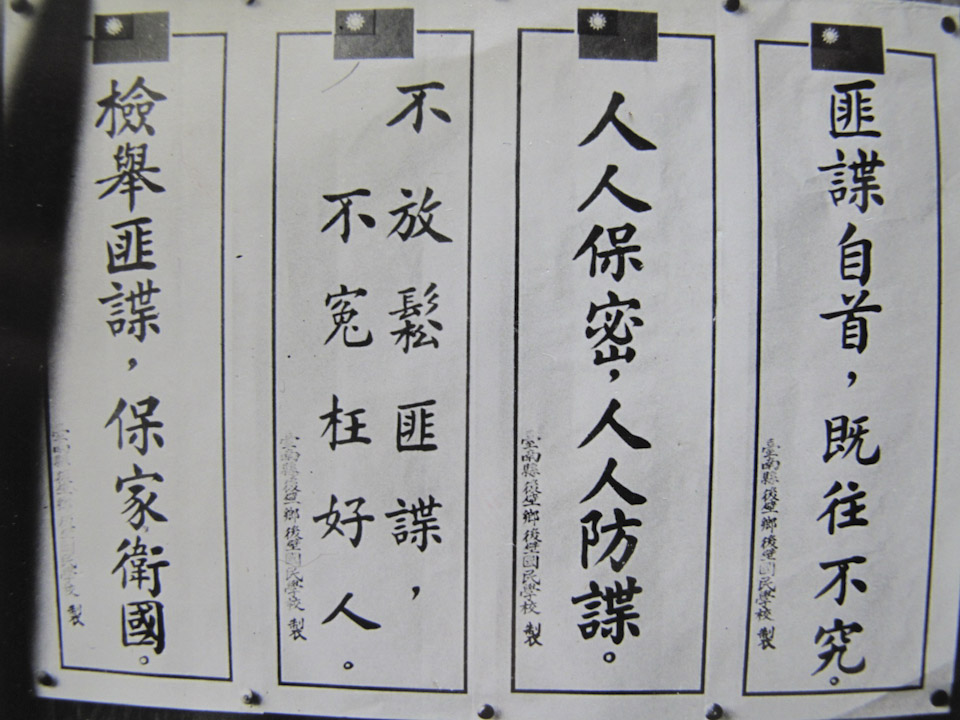 匪諜自首，既往不究。
臺南縣後壁鄉後壁國民學校 製
人人保密，人人防諜。
臺南縣後壁鄉後壁國民學校 製
不放鬆匪諜，
不冤枉好人。
臺南縣後壁鄉後壁國民學校 製
檢舉匪諜，保家衛國。
臺南縣後壁鄉後壁國民學校 製